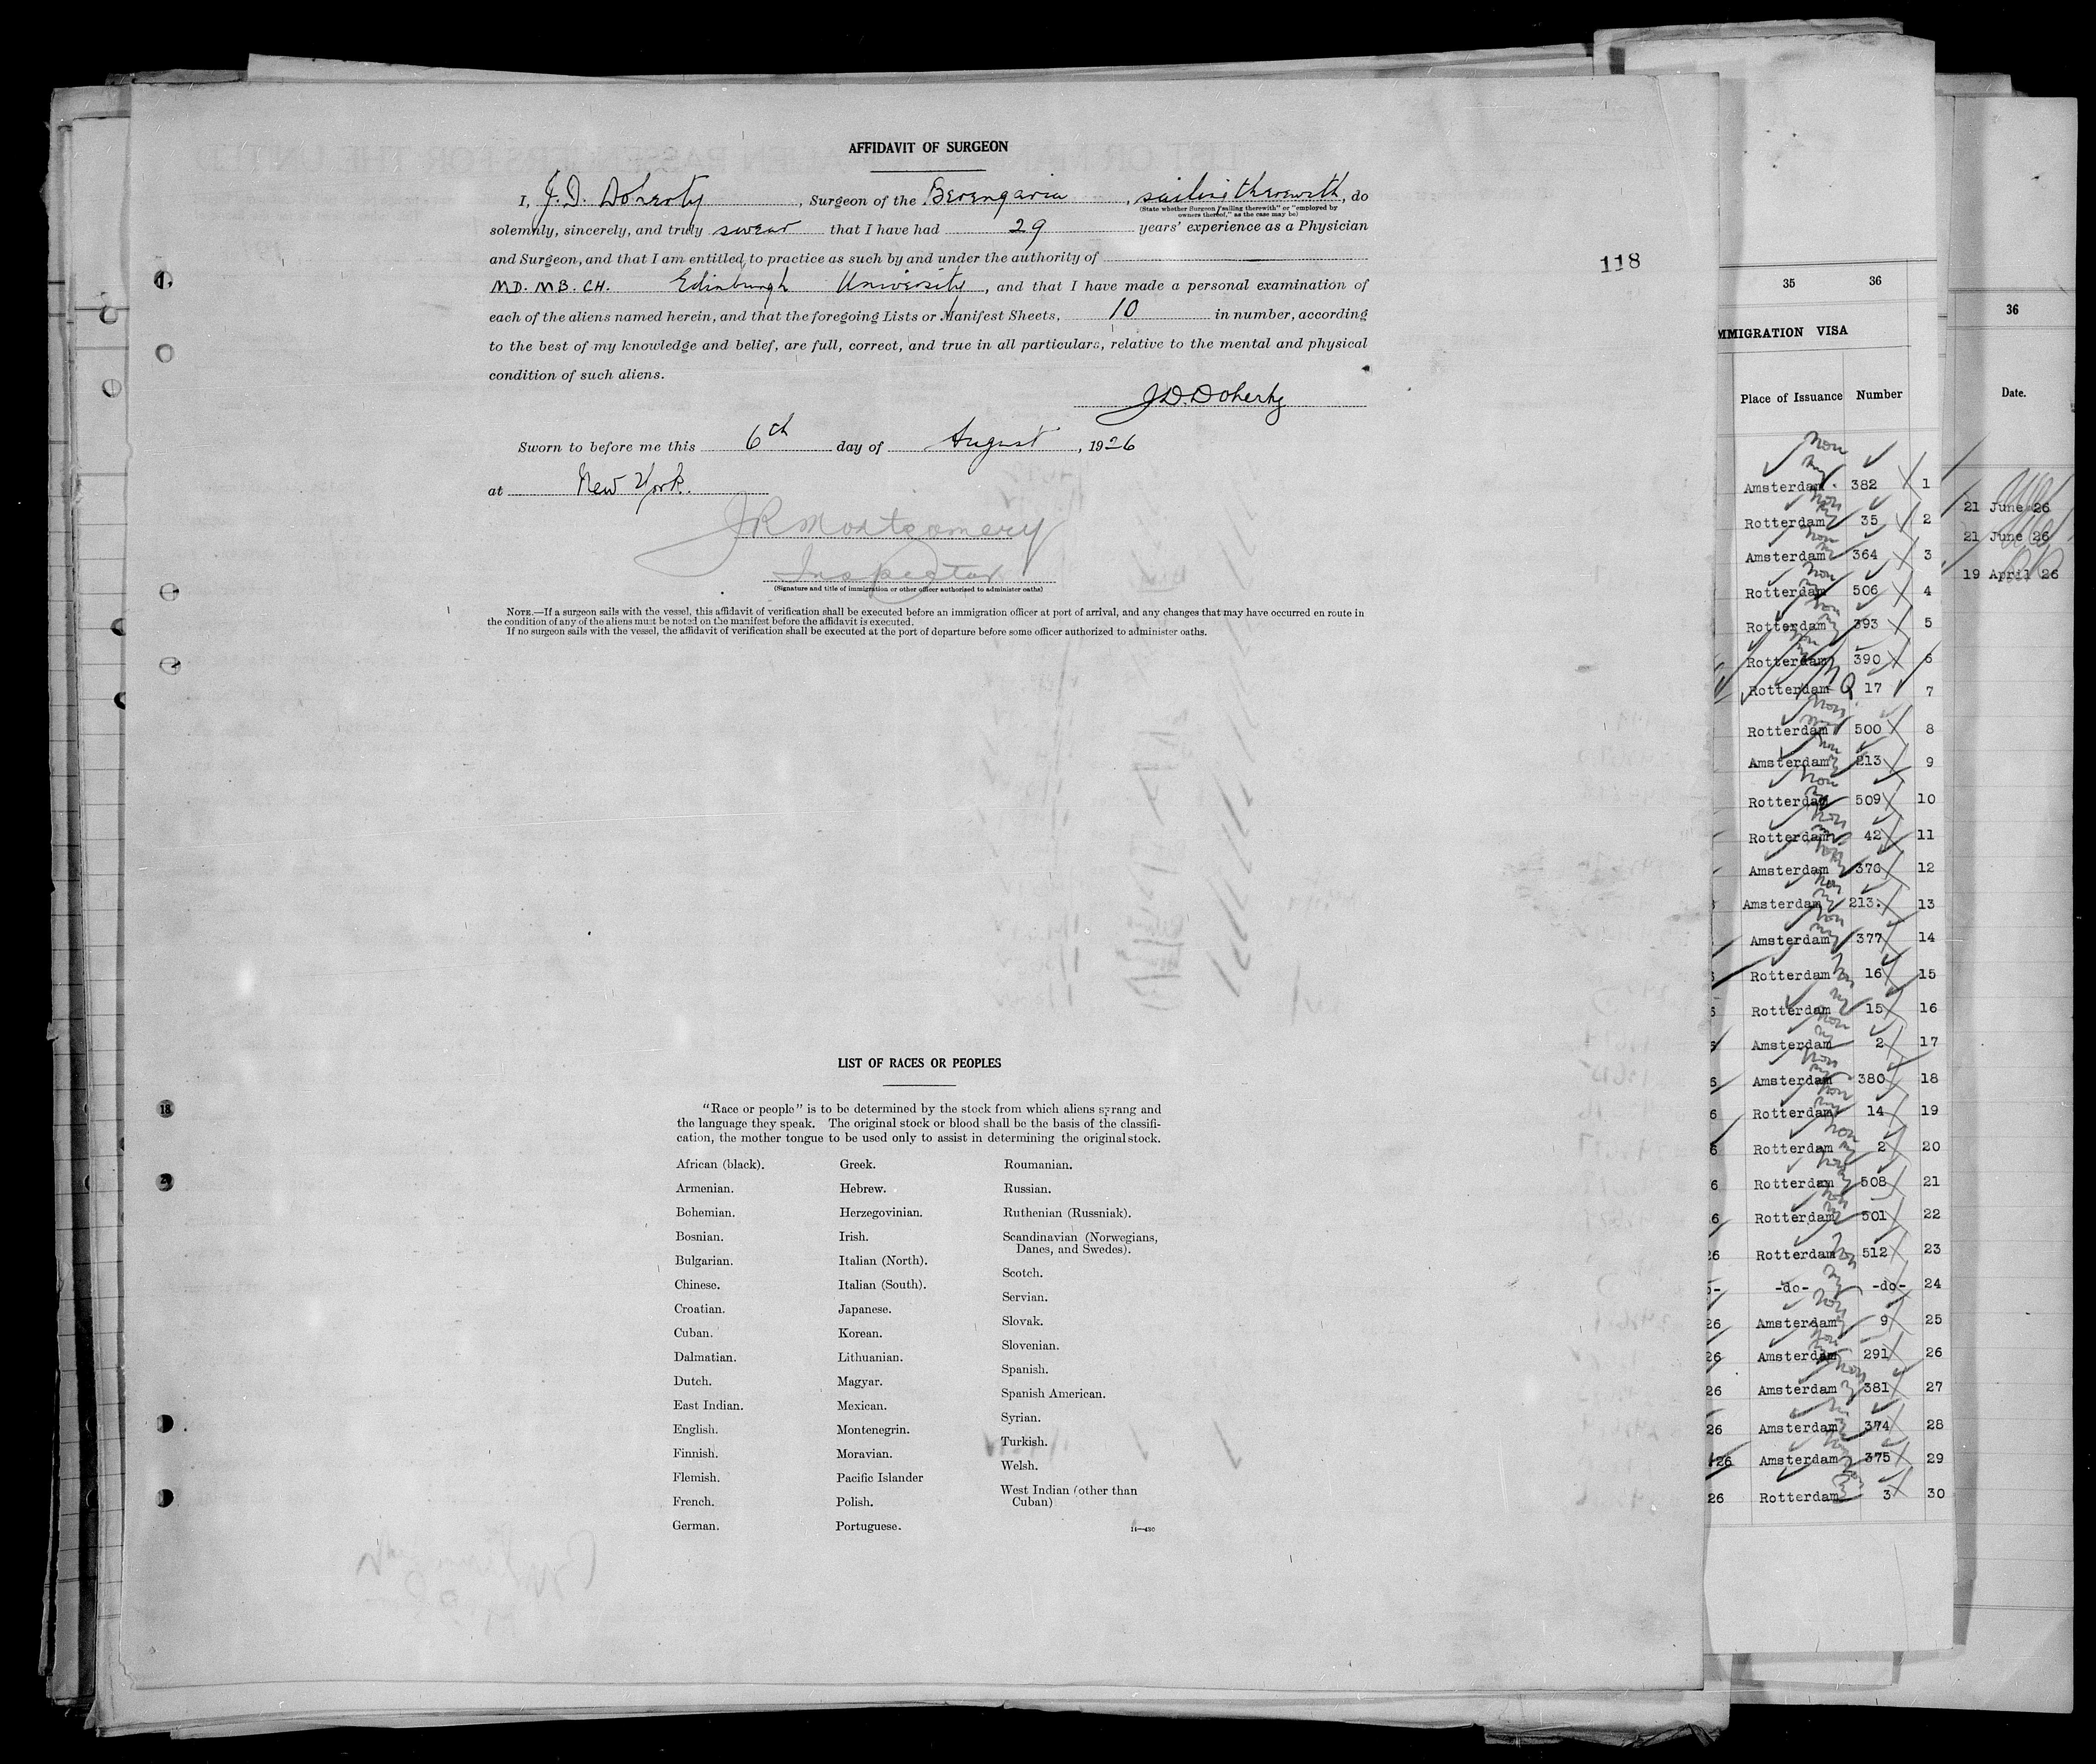 AFFIDAVIT OF SURGEON
I, J. D. Doherty, Surgeon of the Berengaria, sailing therewith, do
(State whether Surgeon "sailing therewith" or "employed by
owners thereof," as the case may be)
solemnly, sincerely, and truly swear that I have had 29 years' experience as a Physician
and Surgeon, and that I am entitled to practice as such by and under the authority of
MD. MB. CH. Edinburgh University, and that I have made a personal examination of
each of the aliens named herein, and that the foregoing Lists or Manifest Sheets, 10 in number, according
to the best of my knowledge and belief, are full, correct, and true in all particulars, relative to the mental and physical
condition of such aliens.
J.D. Doherty
Sworn to before me this 6th day of August, 1926
at New York.
J R Montgomery
Inspector
(Signature and title of immigration or other officer authorized to administer oaths)
NOTE.—If a surgeon sails with the vessel, this affidavit of verification shall be executed before an immigration officer at port of arrival, and any changes that may have occurred en route in
the condition of any of the aliens must be noted on the manifest before the affidavit is executed.
If no surgeon sails with the vessel, the affidavit of verification shall be executed at the port of departure before some officer authorized to administer oaths.
118
LIST OF RACES OR PEOPLES
"Race or people" is to be determined by the stock from which aliens sprang and
the language they speak. The original stock or blood shall be the basis of the classifi-
cation, the mother tongue to be used only to assist in determining the original stock.
African (black).
Armenian.
Bohemian.
Bosnian.
Bulgarian.
Chinese.
Croatian.
Cuban.
Dalmatian.
Dutch.
East Indian.
English.
Finnish.
Flemish.
French.
German.
Greek.
Hebrew.
Herzegovinian.
Irish.
Italian (North).
Italian (South).
Japanese.
Korean.
Lithuanian.
Magyar.
Mexican.
Montenegrin.
Moravian.
Pacific Islander
Polish.
Portuguese.
Roumanian.
Russian.
Ruthenian (Russniak).
Scandinavian (Norwegians,
Danes, and Swedes).
Scotch.
Servian.
Slovak.
Slovenian.
Spanish.
Spanish American.
Syrian.
Turkish.
Welsh.
West Indian (other than
Cuban)
14—430
35 36
MMIGRATION VISA
Place of Issuance Number
Amsterdam. 382 1
Rotterdam 35 2
Amsterdam 364 3
Rotterdam 506 4
Rotterdam 393 5
Rotterdam 390 6
Rotterdam Q 17 7
Rotterdam 500 8
Amsterdam 213 9
Rotterdam 509 10
Rotterdam 42 11
Amsterdam 370 12
Amsterdam 213. 13
Amsterdam 377 14
Rotterdam 16 15
Rotterdam 15 16
Amsterdam 2 17
6 Amsterdam 380 18
6 Rotterdam 14 19
6 Rotterdam 2 20
6 Rotterdam 508 21
6 Rotterdam 501 22
26 Rotterdam 512 23
-do- -do- 24
26 Amsterdam 9 25
26 Amsterdam 291 26
26 Amsterdam 381 27
26 Amsterdam 374 28
26 Amsterdam 375 29
26 Rotterdam 3 30
36
Date.
21 June 26
21 June 26
19 April 26